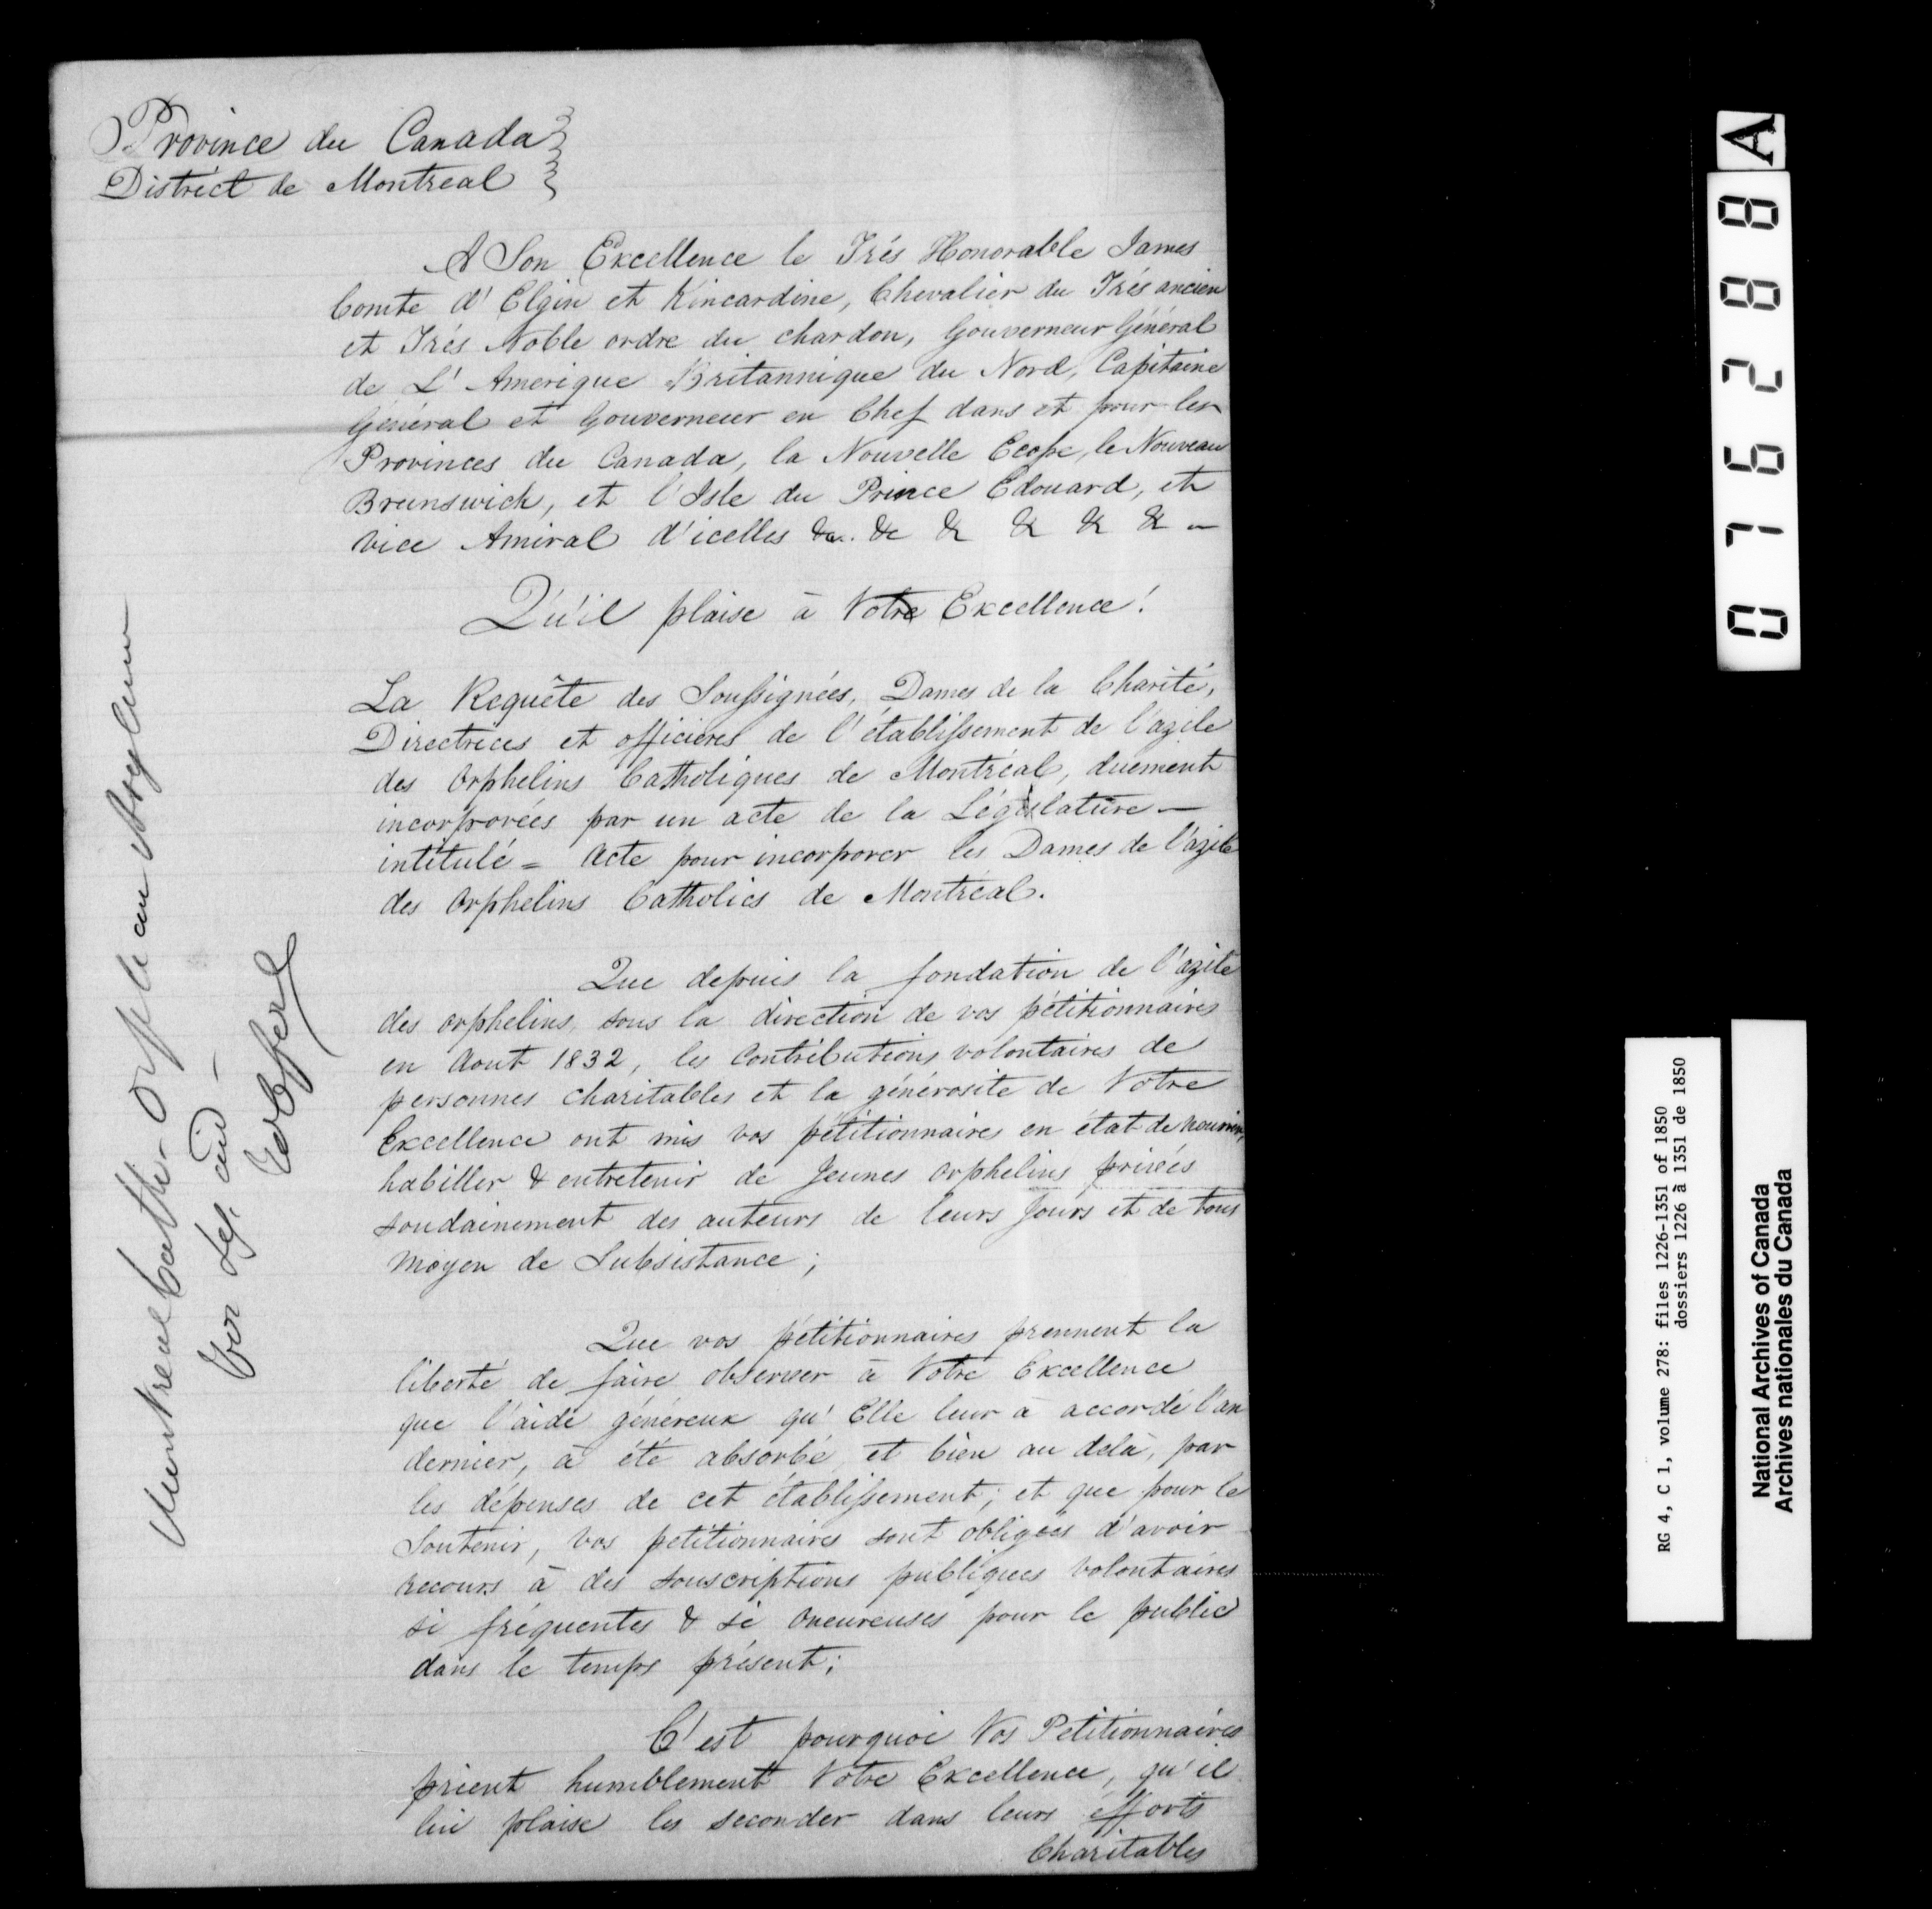 Province du Canada
District de Montreal
A Son Excellence le Trés Honorable James
Comte d'Elgin et Kincardine, Chevalier du Trés ancien
et Trés Noble ordre du chardon, Gouverneur Général
de L'Amerique Britannique du Nord, Capitaine
Général et Gouverneur en Chef dans et pour les
Provinces du Canada, la Nouvelle Ecosse, le Nouveau
Brunswick, et l'Isle du Prince Edouard, et
vice Amiral d'icelles &c. &c & & & & –
Qu'il plaise à Votre Excellence!
La Requête des Soussignées, Dames de la Charité,
Directrices et officieres de l'établissement de l'azile
des Orphelins Catholiques de Montréal, duement
incorporées par un acte de la Législature –
intitulé = Acte pour incorporer les Dames de l'azile
des Orphelins Catholics de Montréal.
Que depuis la fondation de l'azile
des orphelins, sous la direction de vos pétitionnaires
en Aout 1832, les Contributions volontaires de
personnes charitables et la générosite de Votre
Excellence ont mis vos pétitionnaires en état de nourrir,
habiller & entretenir de Jeunes orphelins privés
soudainement des auteurs de leurs Jours et de tous
moyen de Subsistance;
Que vos pétitionnaires prennent la
liberté de faire observer à Votre Excellence
que l'aide généreux qu'Elle leur à accordé l'an
dernier, à été absorbé, et bien au delà, par
les dépenses de cet établissement; et que pour le
Soutenir, vos petitionnaires sont obligées d'avoir
recours à des souscriptions publiques volontaires
si fréquentes & si onéureuses pour le public
dans le temps présent;
C'est pourquoi Vos Petitionnaires
prient humblement Votre Excellence, qu'il
lui plaise les seconder dans leurs éfforts
Charitables
Montreal Cath. Orphean Asylum
for Leg. aid –
A
076288
RG 4, C 1, volume 278: files 1226-1351 of 1850
dossiers 1226 à 1351 de 1850
National Archives of Canada
Archives nationales du Canada